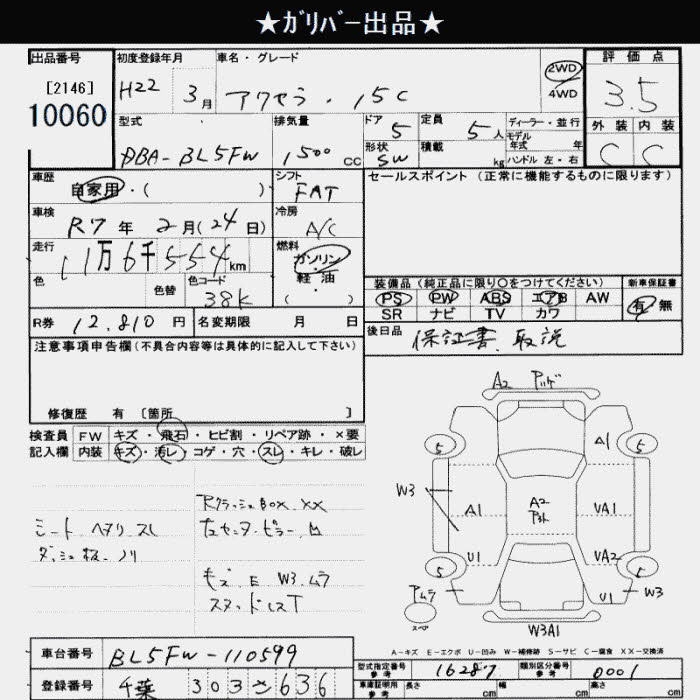 ★ｶﾞﾘﾊﾞｰ出品★
出品番号 初度登録年月 車名・グレード 評価点
[2146] H22 3月 アクセラ・15C 2WD 4WD 3.5
10060
型式 排気量 ドア 5 定員 5人 ディーラー・並行 外装 内装
モデル年式 年
DBA-BL5FW 1500cc 形状 SW 積載 kg ハンドル 左・右 C C
車歴 シフト セールスポイント（正常に機能するものに限ります）
自家用・( ) FAT
車検 冷房
R7年 2月(24日) A/C
走行 燃料
11万6千554km ガソリン・軽油
色 色替 色コード ( )
38K
装備品（純正品に限り〇をつけてください） 新車保証書
PS PW ABS エアB AW 有 無
SR ナビ TV カワ
R券 12,810円 名変期限 月 日
後日品 保証書、取説
注意事項申告欄（不具合内容等は具体的に記入して下さい）
修復歴 有 [箇所 ]
検査員 FW キズ・飛石・ヒビ割・リペア跡・×要
記入欄 内装 キズ・汚レ・コゲ・穴・スレ・キレ・破レ
A2
5 A1 5
W3
A1 A2 VA1
U1 VA2
5 5
U1 W3
スペア
W3A1
A-キズ E-エクボ U-凹み W-補修跡 S-サビ C-腐食 XX-交換済
車台番号 BL5FW-110599
型式指定番号 参考 16287 類別区分番号 参考 0001
登録番号 千葉 303 さ 636
車庫証明用 参考 長さ cm 幅 cm 高さ cm